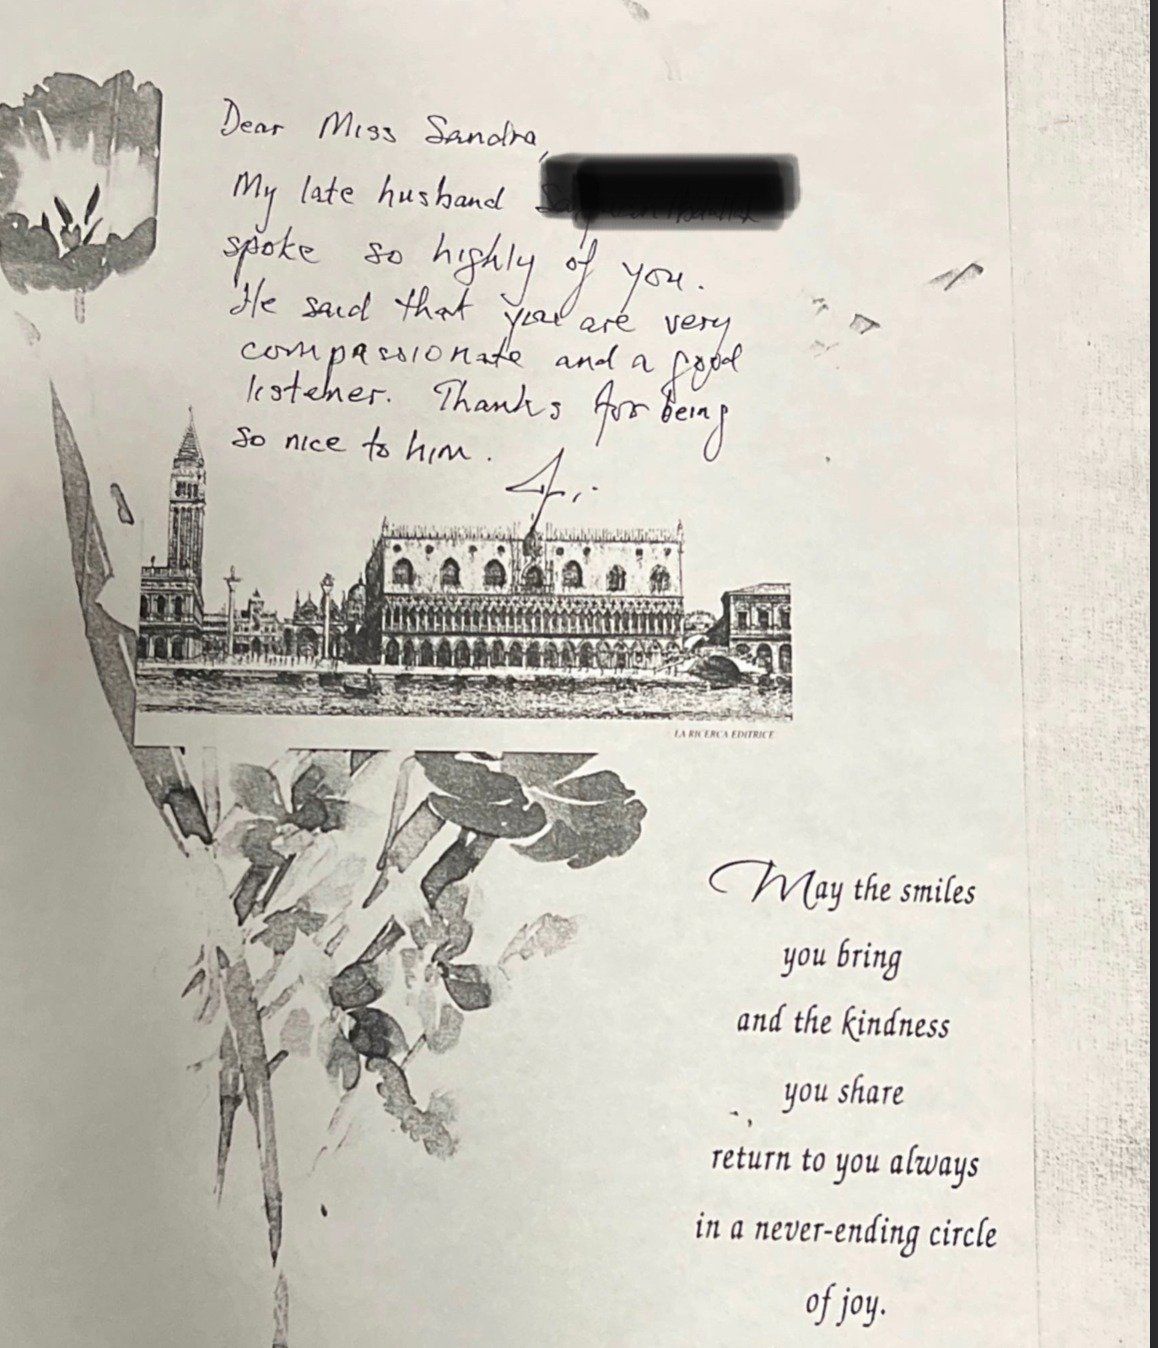 Dear Miss Sandra,
My late husband
spoke so highly of you.
He said that you are very
compassionate and a good
listener. Thanks for being
so nice to him.
LA RICERCA EDITRICE
May the smiles
you bring
and the kindness
you share
return to you always
in a never-ending circle
of joy.